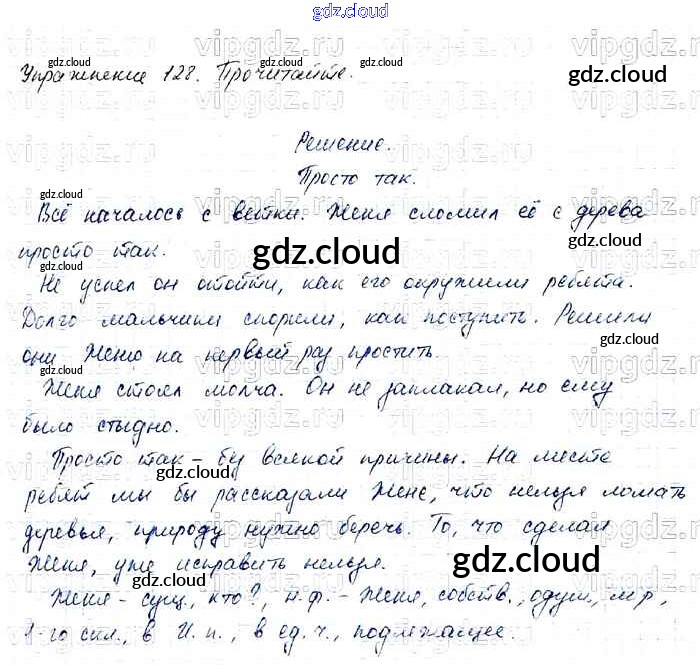 gdz.cloud
Упражнение 128. Прочитайте.
Решение.
Просто так.
Всё началось с ветки. Женя сломил её с дерева
просто так.
Не успел он отойти, как его окружили ребята.
Долго мальчики спорили, как поступить. Решили
они Женю на первый раз простить.
Женя стоял молча. Он не заплакал, но ему
было стыдно.
Просто так – без всякой причины. На месте
ребят мы бы рассказали Жене, что нельзя ломать
деревья, природу нужно беречь. То, что сделал
Женя, уже исправить нельзя.
Женя – сущ., кто?, н.ф. – Женя, собств., одуш., м.р.,
1-го скл., в И.п., в ед.ч., подлежащее.